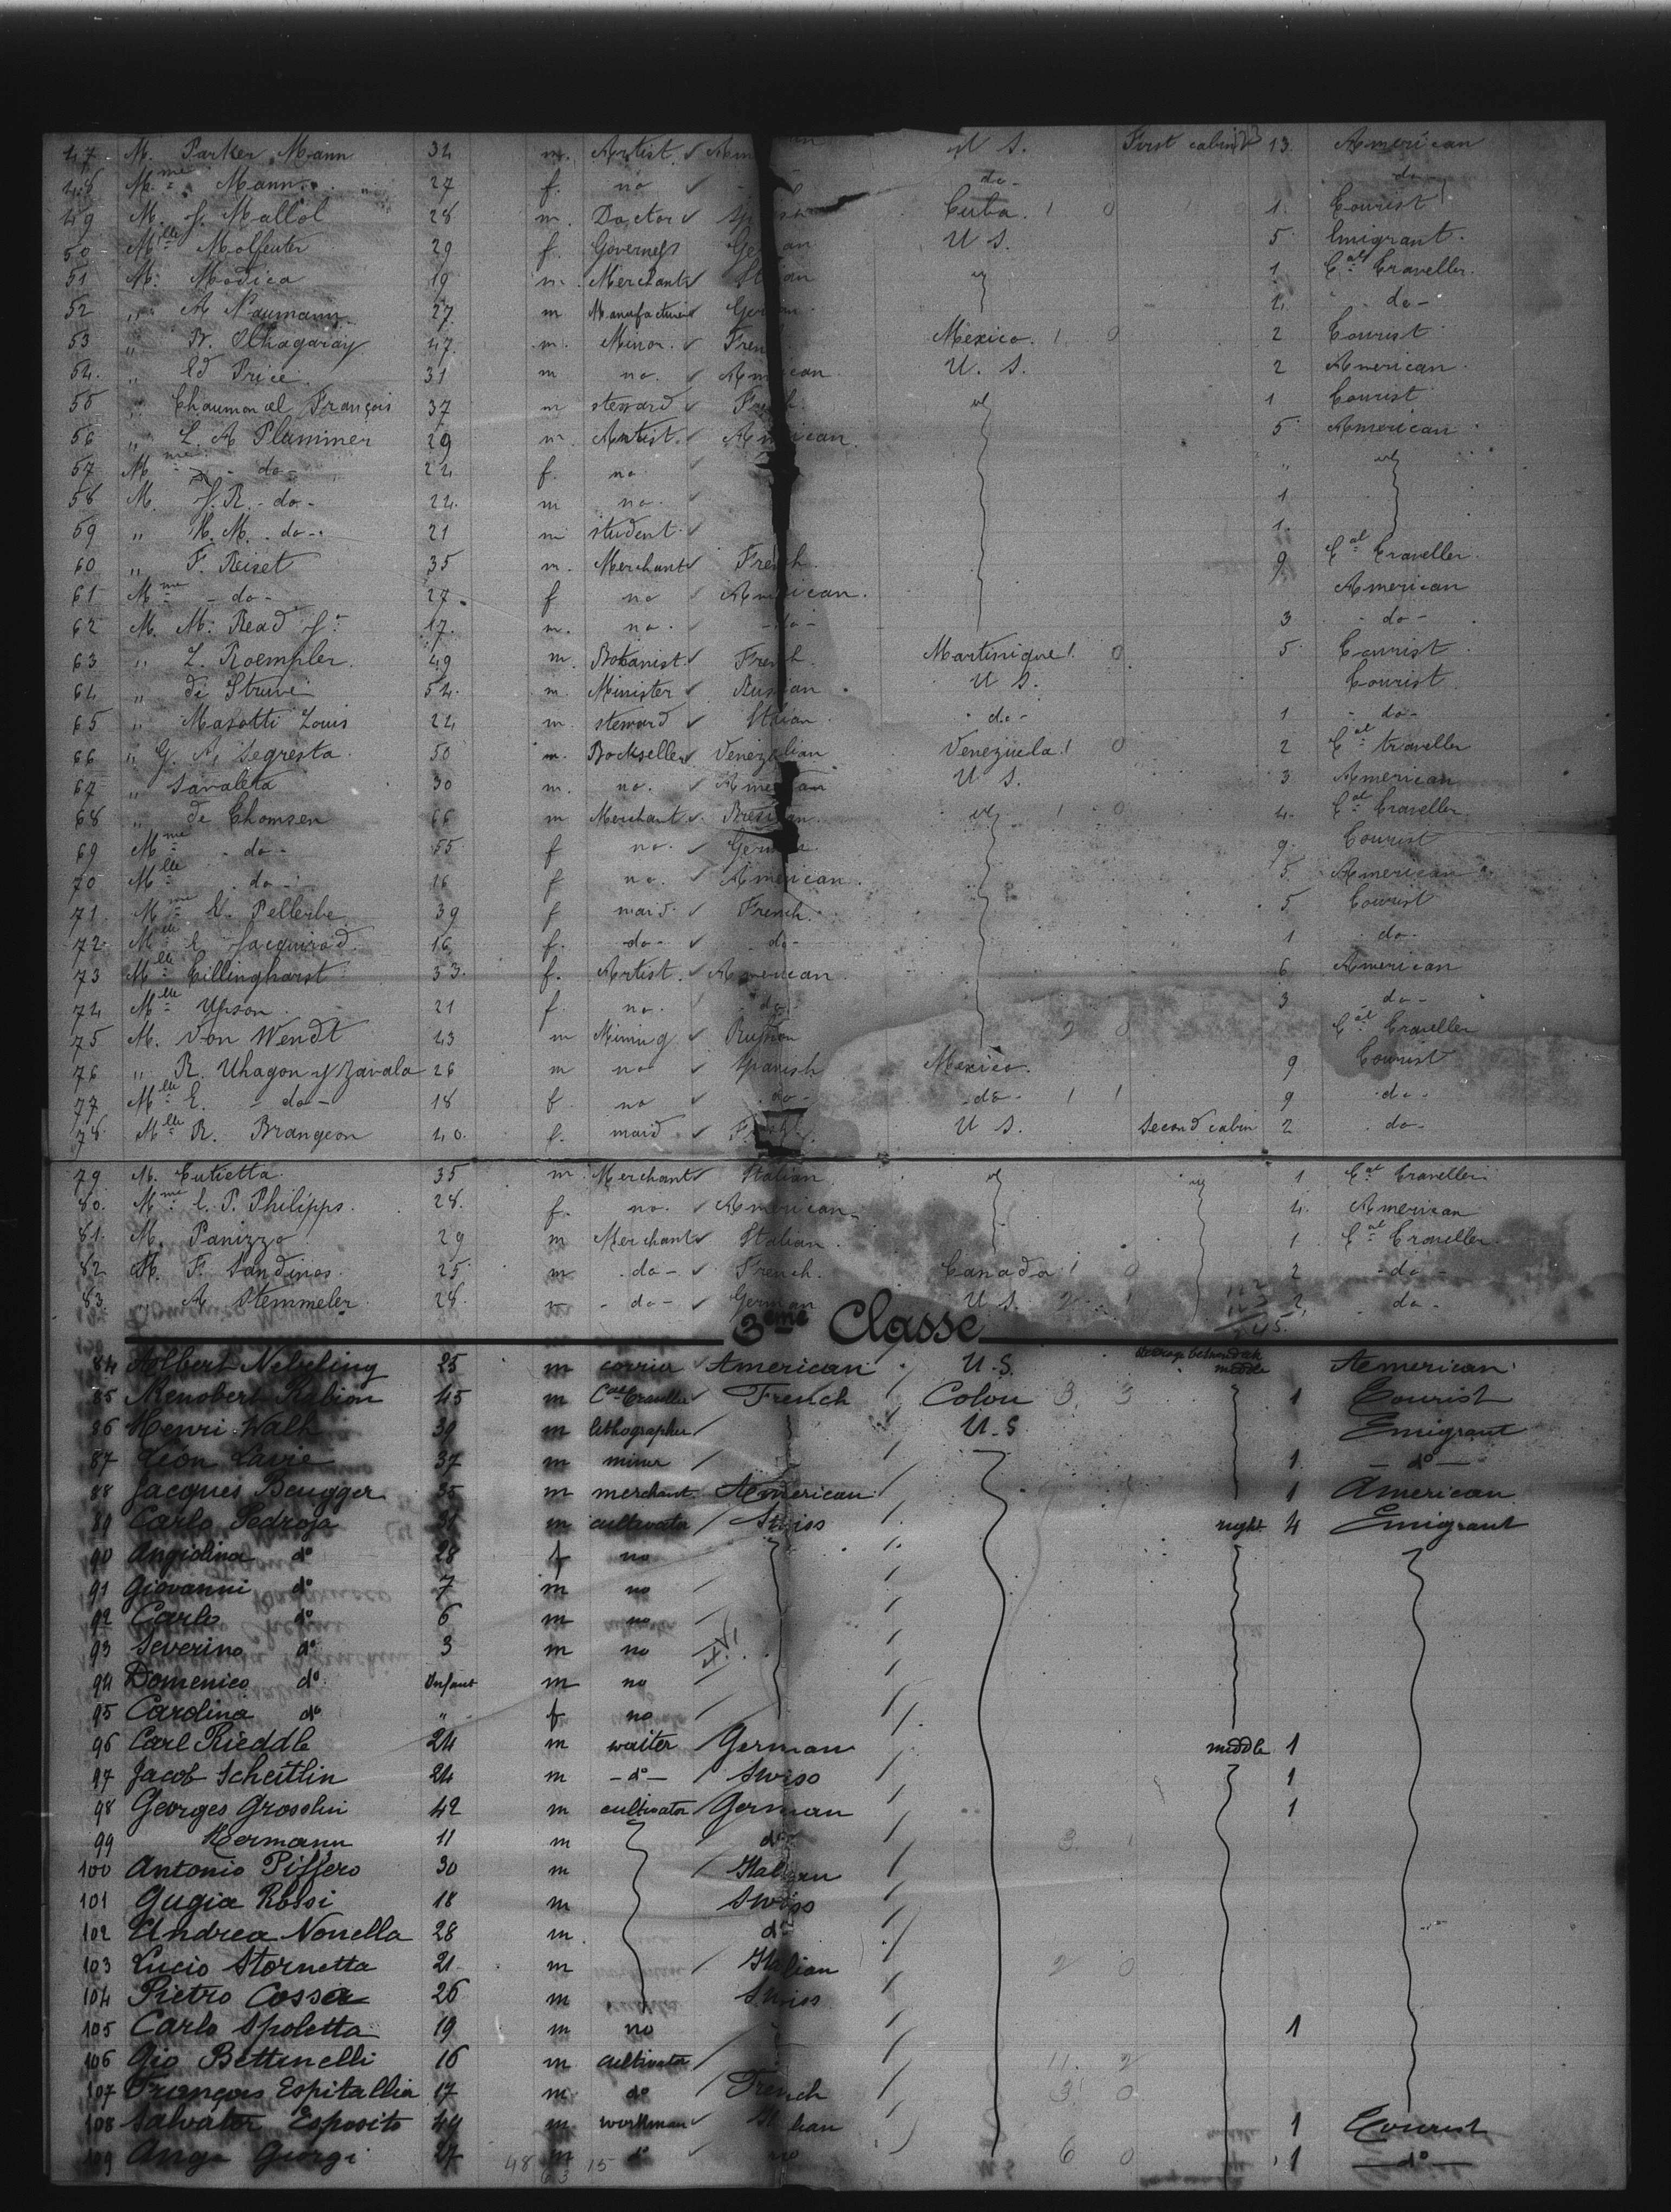 47 M. Parker Mann 34 m. Artist Am an U S. First cabin 13 American
48 Mme Mann 27 f. no do- do
49 M. J. Mallol 28 m. Doctor Cuba. 1 0 1. Tourist
50 Mlle Molfenter 29 f. Governess German U S. 5 Emigrant.
51 M. Modica 19 m. Merchant Italian 1 Cal Traveller.
52 " A Naumann 27 m Manufacturer German do-
53 " B. Olhagaray 47 m. Minor. Fren Mexico. 1 0 2 Tourist
54. " Ed Price 31 m no. American U. S. 2 American
55 " François 37 m steward French. 1 Tourist
56 " L. A Plummer 29 m. Artist. American. 5 American
57 Mme - do- 24 f. no "
58 M. J. R. - do - 22. m no. 1
59 " H. M. - do - 21 m student. 1.
60 " F. Reiset 35 m. Merchant French. 9 Cal Traveller.
61 Mme - do - 27. f no American. American
62 M. M. Read Jr 17. m. no. - do - 3 - do -
63 " L. Roempler. 49 m. Botanist. French. Martinique 1. 0. 5 Tourist
64 " de Struve 54. m. Minister Russian U S. Tourist
65 " Masotti Louis 24 m. steward Italian. - do - 1 - do -
66 " G. A. Segresta. 50 m. Bookseller Venezuelian Venezuela 1 0 2 Cal traveller
67 " Savaleta 30 m. no. American U S. 3 American
68 " de Thomsen 66 m Merchant 1 0 4. Cal Traveller
69 Mme - do - 55 f no. German. 9. Tourist
70 Mlle - do - 16 f no. American. 5. American
71. Mme E. Pellerbe 39 f maid. French. 5 Tourist
72. Mlle E. Jacquirod. 16 f. - do - do - 1 do -
73 Mlle Tillinghurst 33. f. Artist. American 6 American
74 Mlle Upson. 21 f. no. - do - 3 - do -
75 M. von Wendt 43 m Mining Russian 2 0 Cal Traveller
76 " R. Uhagon y Zavala 26 m no Spanish Mexico. 9 Tourist
77 Mlle E. - do - 18 f no do - - do - 1 1 9 - do -
78 Mlle R. Brangeon 40. f. maid. U S. Second cabin 2 do -
79 M. Cutietta 35 m. Merchant Italian. 1 Cal Traveller
80. Mme E. P. Philipps. 28. f. no. American 4. American
81. M. Panizza 29 m Merchant Italian. 1 Cal Traveller.
82 M. F. Sandinos 25 m - do - French. Canada 1 0 2 - do -
83. " A Stemmeler 28. m - do - German U S. 2 1 2, - do -
3eme Classe
84 Albert Nebeling 25 m American U.S. middle American
85 Menobert Ralion 45 m Cal Traveller French Colon 3. 3 1 Tourist
86 Henri Walh 39 m lithographer U.S Emigrant
87 Léon Lavie 37 m miner 1. - do -
88 Jacques Beugger 35 m merchant. American 1 American
89 Carlo Pedroja m cultivator Swiss right 4 Emigrant
90 Angiolina do 28 f no
91 Giovanni do 7 m no
92 Carlo do 6 m no
93 Severino do 3 m no
94 Domenico do Infant m no
95 Carolina do " f no
96 Carl Rieddle 24 m waiter German middle 1
97 Jacob Scheitlin 24 m - do - Swiss 1
98 Georges Grosslin 42 m cultivator German 1
99 Hermann 11 m do 3.
100 Antonio Piffero 30 m Italian
101 Gugia Rossi 18 m Swiss
102 Andrea Nonella 28 m do
103 Lucio Stornetta 21 m Italian 2 0
104 Pietro Cossa 26 m Swiss
105 Carlo Spoletta 19 m no 1
106 Gio Bettinelli 16 m cultivator 11. 2
107 François Espitallia 17 m do French 3 0
108 Salvator Esposito 44 m workman Italian 1 Tourist
109 Ange Giorgi 27 48 m 15 do no 6 0 1 - do -